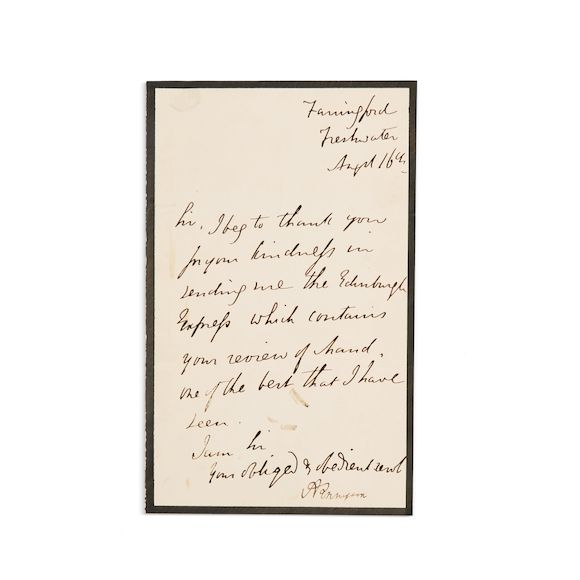 Farringford
Freshwater
Augst 16th
Sir, I beg to thank you
for your kindness in
sending me the Edinburgh
Express which contains
your review of Maud,
one of the best that I have
seen.
I am Sir
your obliged & obedient servt
ATennyson